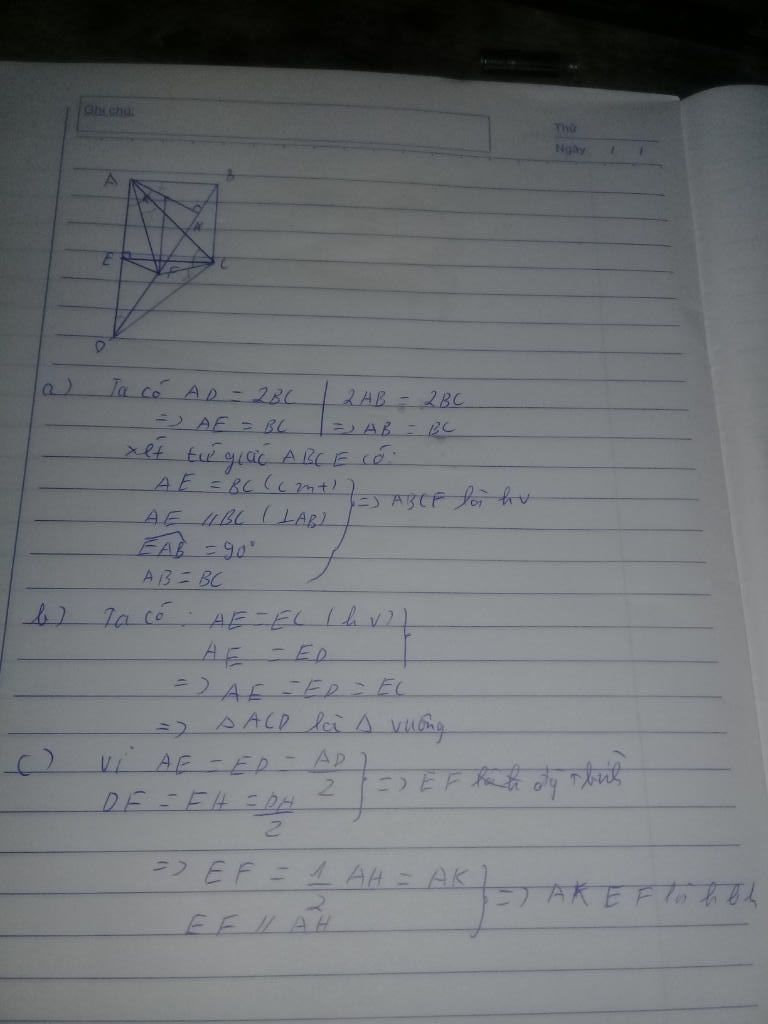 Ghi chú:
Thứ
Ngày / /
A
B
K
H
E
F
C
D
a) Ta có AD = 2BC | 2AB = 2BC
=> AE = BC | => AB = BC
xét tứ giác ABCE có:
AE = BC (cmt)
AE // BC (⊥AB)
=> ABCE là hv
EAB = 90°
AB = BC
b) Ta có: AE = EC (hv)
AE = ED
=> AE = ED = EC
=> ΔACD là Δ vuông
c) Vì AE = ED = AD/2
DF = FH = DH/2
=> EF là đg tbình
=> EF = 1/2 AH = AK
EF // AH
=> AKEF là hbh